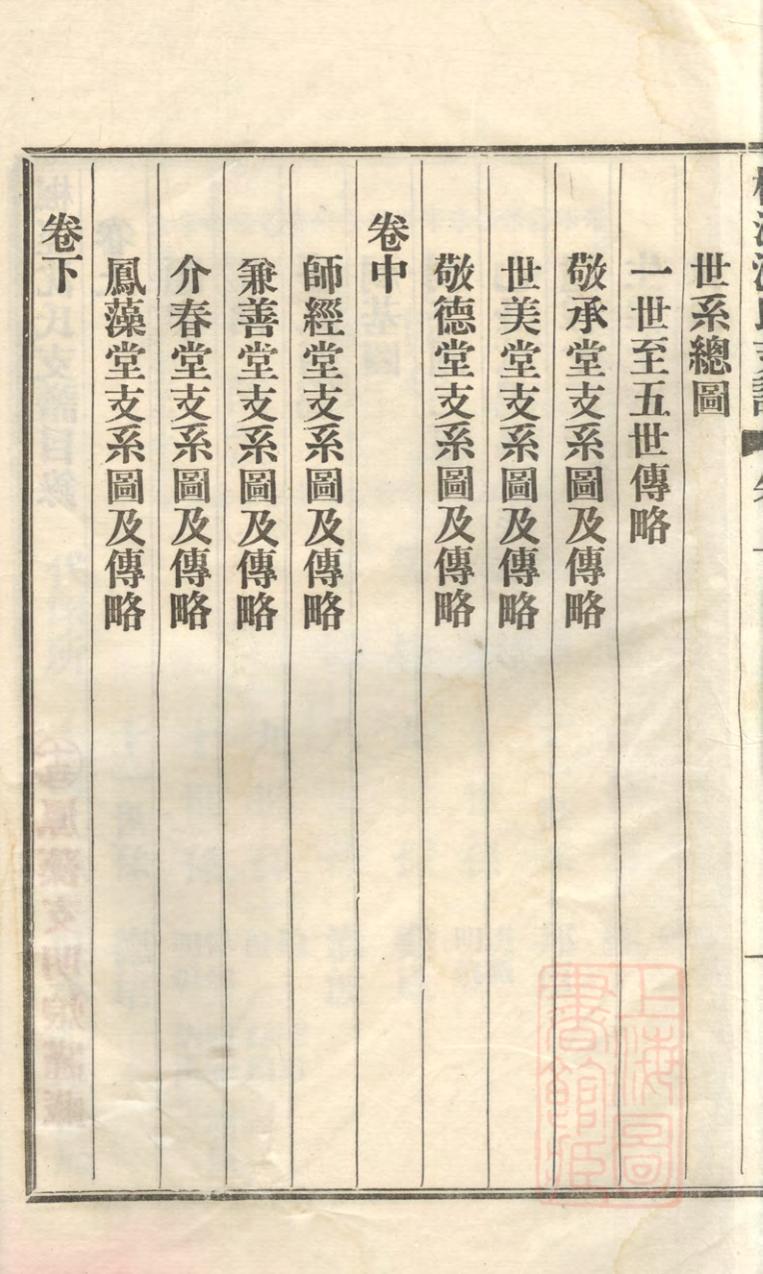 世系總圖
一世至五世傳略
敬承堂支系圖及傳略
世美堂支系圖及傳略
敬德堂支系圖及傳略
卷中
師經堂支系圖及傳略
兼善堂支系圖及傳略
介春堂支系圖及傳略
鳳藻堂支系圖及傳略
卷下
上海圖
書館藏